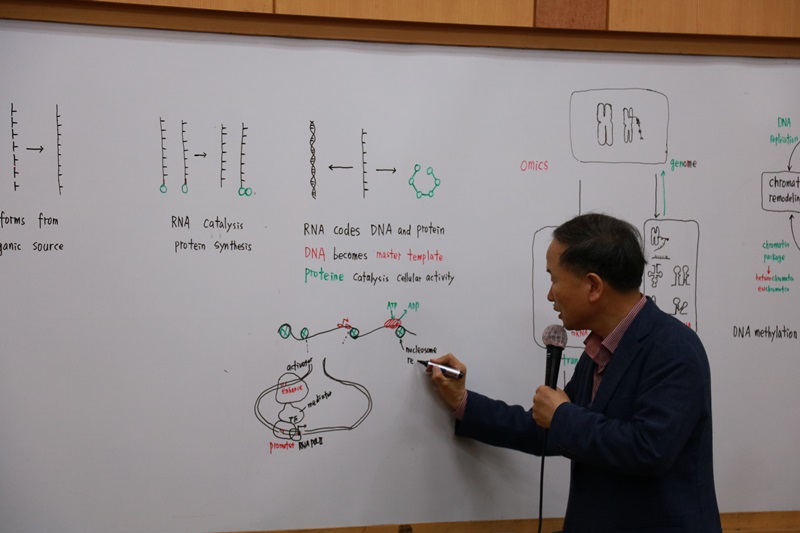 forms from
ganic source
RNA catalysis
protein synthesis
RNA codes DNA and protein
DNA becomes master template
Proteine catalysis cellular activity
ATP
ADP
nucleosome
re
activator
enhance
mediator
TF
promoter
RNA Pol II
Omics
genome
tran
DNA
replication
chromat
remodelin
chromatin
package
heterochromatin
euchromatin
DNA methylation